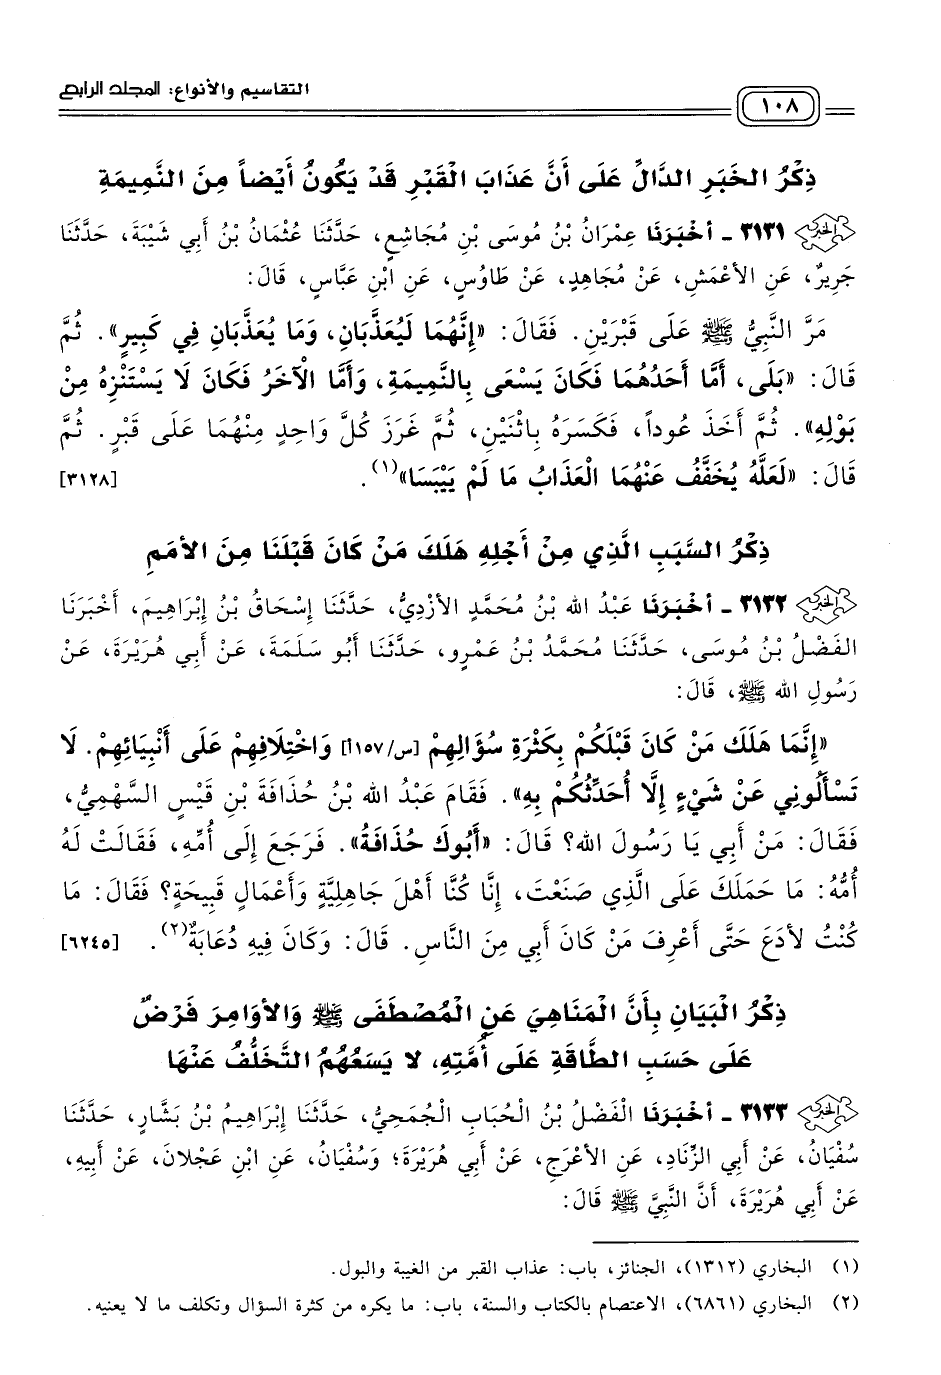 التقاسيم والأنواع: المجلد الرابع
١٠٨
ذِكْرُ الخَبَرِ الدَّالِّ عَلَى أَنَّ عَذَابَ القَبْرِ قَدْ يَكُونُ أَيْضاً مِنَ النَّمِيمَةِ
٣١٣١ - أَخْبَرَنَا عِمْرَانُ بْنُ مُوسَى بْنِ مُجَاشِعٍ، حَدَّثَنَا عُثْمَانُ بْنُ أَبِي شَيْبَةَ، حَدَّثَنَا
جَرِيرٌ، عَنِ الأَعْمَشِ، عَنْ مُجَاهِدٍ، عَنْ طَاوُسٍ، عَنِ ابْنِ عَبَّاسٍ، قَالَ:
مَرَّ النَّبِيُّ ﷺ عَلَى قَبْرَيْنِ. فَقَالَ: «إِنَّهُمَا لَيُعَذَّبَانِ، وَمَا يُعَذَّبَانِ فِي كَبِيرٍ». ثُمَّ
قَالَ: «بَلَى، أَمَّا أَحَدُهُمَا فَكَانَ يَسْعَى بِالنَّمِيمَةِ، وَأَمَّا الْآخَرُ فَكَانَ لَا يَسْتَنْزِهُ مِنْ
بَوْلِهِ». ثُمَّ أَخَذَ عُوداً، فَكَسَرَهُ بِاثْنَيْنِ، ثُمَّ غَرَزَ كُلَّ وَاحِدٍ مِنْهُمَا عَلَى قَبْرٍ. ثُمَّ
قَالَ: «لَعَلَّهُ يُخَفَّفُ عَنْهُمَا الْعَذَابُ مَا لَمْ يَيْبَسَا»(١). [٣١٢٨]
ذِكْرُ السَّبَبِ الَّذِي مِنْ أَجْلِهِ هَلَكَ مَنْ كَانَ قَبْلَنَا مِنَ الأُمَمِ
٣١٣٢ - أَخْبَرَنَا عَبْدُ الله بْنُ مُحَمَّدٍ الأَزْدِيُّ، حَدَّثَنَا إِسْحَاقُ بْنُ إِبْرَاهِيمَ، أَخْبَرَنَا
الفَضْلُ بْنُ مُوسَى، حَدَّثَنَا مُحَمَّدُ بْنُ عَمْرٍو، حَدَّثَنَا أَبُو سَلَمَةَ، عَنْ أَبِي هُرَيْرَةَ، عَنْ
رَسُولِ الله ﷺ، قَالَ:
«إِنَّمَا هَلَكَ مَنْ كَانَ قَبْلَكُمْ بِكَثْرَةِ سُؤَالِهِمْ [س/١٥٧أ] وَاخْتِلَافِهِمْ عَلَى أَنْبِيَائِهِمْ. لَا
تَسْأَلُونِي عَنْ شَيْءٍ إِلَّا أُحَدِّثُكُمْ بِهِ». فَقَامَ عَبْدُ الله بْنُ حُذَافَةَ بْنِ قَيْسٍ السَّهْمِيُّ،
فَقَالَ: مَنْ أَبِي يَا رَسُولَ الله؟ قَالَ: «أَبُوكَ حُذَافَةُ». فَرَجَعَ إِلَى أُمِّهِ، فَقَالَتْ لَهُ
أُمُّهُ: مَا حَمَلَكَ عَلَى الَّذِي صَنَعْتَ، إِنَّا كُنَّا أَهْلَ جَاهِلِيَّةٍ وَأَعْمَالٍ قَبِيحَةٍ؟ فَقَالَ: مَا
كُنْتُ لأَدَعَ حَتَّى أَعْرِفَ مَنْ كَانَ أَبِي مِنَ النَّاسِ. قَالَ: وَكَانَ فِيهِ دُعَابَةٌ(٢). [٦٢٤٥]
ذِكْرُ الْبَيَانِ بِأَنَّ الْمَنَاهِيَ عَنِ الْمُصْطَفَى ﷺ وَالأَوَامِرَ فَرْضٌ
عَلَى حَسَبِ الطَّاقَةِ عَلَى أُمَّتِهِ، لا يَسَعُهُمُ التَّخَلُّفُ عَنْهَا
٣١٣٣ - أَخْبَرَنَا الْفَضْلُ بْنُ الْحُبَابِ الْجُمَحِيُّ، حَدَّثَنَا إِبْرَاهِيمُ بْنُ بَشَّارٍ، حَدَّثَنَا
سُفْيَانُ، عَنْ أَبِي الزِّنَادِ، عَنِ الأَعْرَجِ، عَنْ أَبِي هُرَيْرَةَ؛ وَسُفْيَانُ، عَنِ ابْنِ عَجْلانَ، عَنْ أَبِيهِ،
عَنْ أَبِي هُرَيْرَةَ، أَنَّ النَّبِيَّ ﷺ قَالَ:
(١) البخاري (١٣١٢)، الجنائز، باب: عذاب القبر من الغيبة والبول.
(٢) البخاري (٦٨٦١)، الاعتصام بالكتاب والسنة، باب: ما يكره من كثرة السؤال وتكلف ما لا يعنيه.